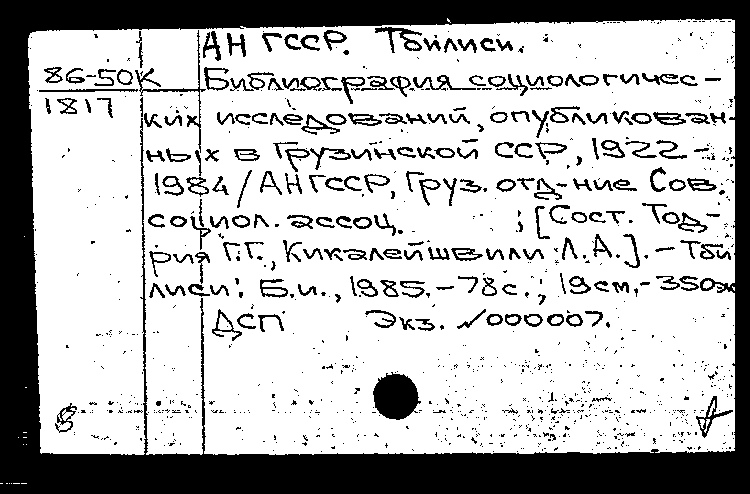 АН ГССР. Тбилиси.
86-50К Библиография социологичес-
1817 ких исследований, опубликован-
ных в Грузинской ССР, 1922-
1984/АН ГССР, Груз. отд-ние Сов.
социол. ассоц. ; [Сост. Тод-
рия Г.Г., Кикалейшвили Л.А.]. - Тби
лиси: Б.и., 1985. - 78с.; 19см. - 350эк
ДСП Экз. №000007.
8